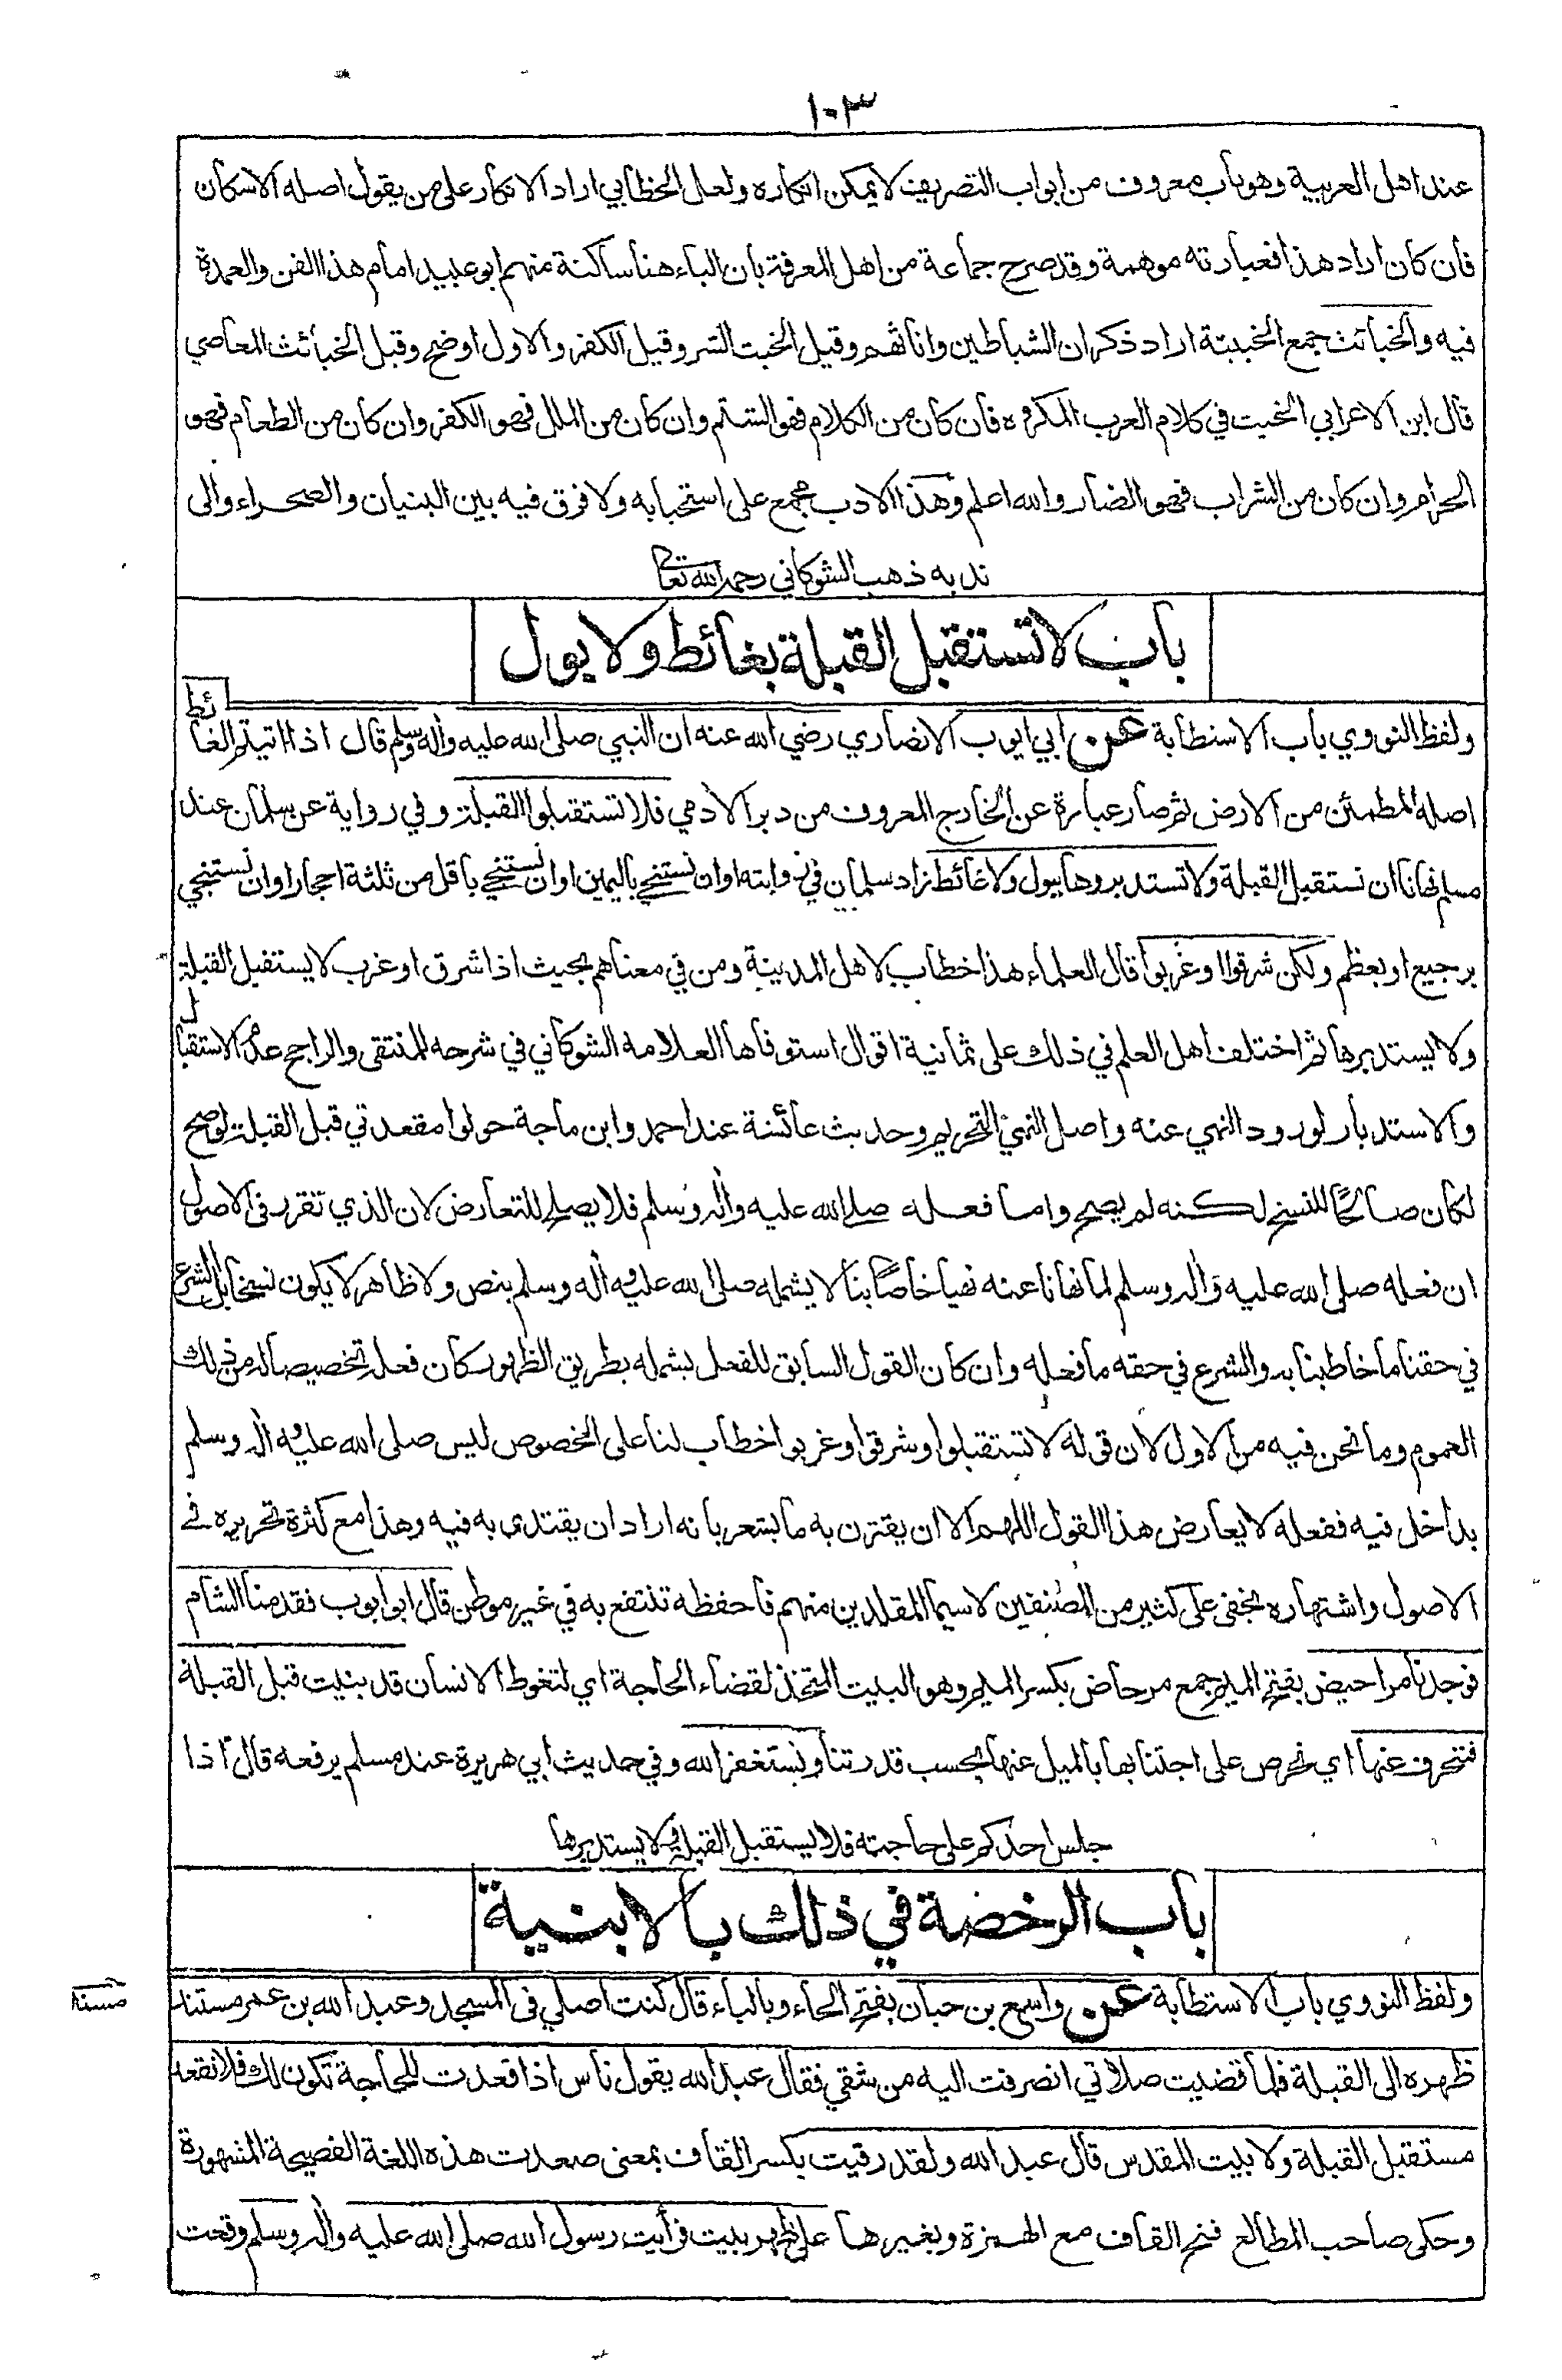 ١٠٣
عند اهل العربية وهو باب معروف من ابواب التصريف لا يمكن انكاره ولعل الخطابي اراد الانكار على من يقول اصله الاسكان
فان كان اراد هذا فعبارته موهمة وقد صرح جماعة من اهل المعرفة بان الباء هنا ساكنة منهم ابو عبيد امام هذا الفن والعمدة
فيه والخبائث جمع الخبيثة اراد ذكران الشياطين واناثهم وقيل الخبث الشر وقيل الكفر والاول اوضح وقيل الخبائث المعاصي
قال ابن الاعرابي الخبث في كلام العرب المكروه فان كان من الكلام فهو الشتم وان كان من الملل فهو الكفر وان كان من الطعام فهو
الحرام وان كان من الشراب فهو الضار والله اعلم وهذا الادب مجمع على استحبابه ولا فرق فيه بين البنيان والصحراء والى
ندبه ذهب الشوكاني رحمه الله تعالى
باب لا تستقبل القبلة بغائط ولا بول
ولفظ النووي باب الاستطابة عن ابي ايوب الانصاري رضي الله عنه ان النبي صلى الله عليه واله وسلم قال اذا اتيتم الغائط
اصله المطمئن من الارض ثم صار عبارة عن الخارج المعروف من دبر الآدمي فلا تستقبلوا القبلة وفي رواية عن سلمان عند
مسلم نهانا ان نستقبل القبلة ولا تستدبروها ببول ولا غائط زاد سلمان في روايته او ان نستنجي باليمين او ان نستنجي باقل من ثلثة احجار او ان نستنجي
برجيع او بعظم ولكن شرقوا او غربوا قال العلماء هذا خطاب لاهل المدينة ومن في معناهم بحيث اذا شرق او غرب لا يستقبل القبلة
ولا يستدبرها ثم اختلف اهل العلم في ذلك على ثمانية اقوال استوفاها العلامه الشوكاني في شرحه للمنتقى والراجح عدم الاستقبال
والاستدبار لورود النهي عنه واصل النهي التحريم وحديث عائشة عند احمد وابن ماجة حولوا مقعدتي قبل القبلة لو صح
لكان صالحًا للنسخ لكنه لم يصح واما فعله صلى الله عليه واله وسلم فلا يصلح للتعارض لان الذي تقرر في الاصول
ان فعله صلى الله عليه واله وسلم لما نهانا عنه نهيا خاصًا بنا لا يشمله صلى الله عليه وآله وسلم بنص ولا ظاهر لا يكون نسخا بل الشرع
في حقنا ما خاطبنا به والشرع في حقه ما فعله وان كان القول السابق للفعل يشمله بطريق الظهور كان فعله تخصيصا له من ذلك
العموم وما نحن فيه من الاول لان قوله لا تستقبلوا وشرقوا وغربوا خطاب لنا على الخصوص ليس صلى الله عليه وآله وسلم
بداخل فيه ففعله لا يعارض هذا القول اللهم الا ان يقترن به ما يشعر بانه اراد ان يقتدى به فيه وهذا مع كثرة تحريره في
الاصول واشتهاره يخفى على كثير من المصنفين لا سيما المقلدين منهم فاحفظه تنتفع به في غير موطن قال ابو ايوب فقدمنا الشام
فوجدنا مراحيض بفتح الميم جمع مرحاض بكسر الميم وهو البيت المتخذ لقضاء الحاجة اي لتغوط الانسان قد بنيت قبل القبلة
فننحرف عنها اي نحرص على اجتنابها بالميل عنها بحسب قدرتنا ونستغفر الله وفي حديث ابي هريرة عند مسلم يرفعه قال اذا
جلس احدكم على حاجته فلا يستقبل القبلة ولا يستدبرها
باب الرخصة في ذلك بالابنية
ولفظ النووي باب الاستطابة عن واسع بن حبان بفتح الحاء وبالباء قال كنت اصلي في المسجد وعبد الله بن عمر مستند
ظهره الى القبلة فلما قضيت صلاتي انصرفت اليه من شقي فقال عبد الله يقول ناس اذا قعدت للحاجة تكون لك فلا تقعد
مستقبل القبلة ولا بيت المقدس قال عبد الله ولقد رقيت بكسر القاف بمعنى صعدت هذه اللغة الفصيحة المشهورة
وحكى صاحب المطالع فتح القاف مع الهمزة وبغيرها على ظهر بيت فرأيت رسول الله صلى الله عليه واله وسلم وقعت